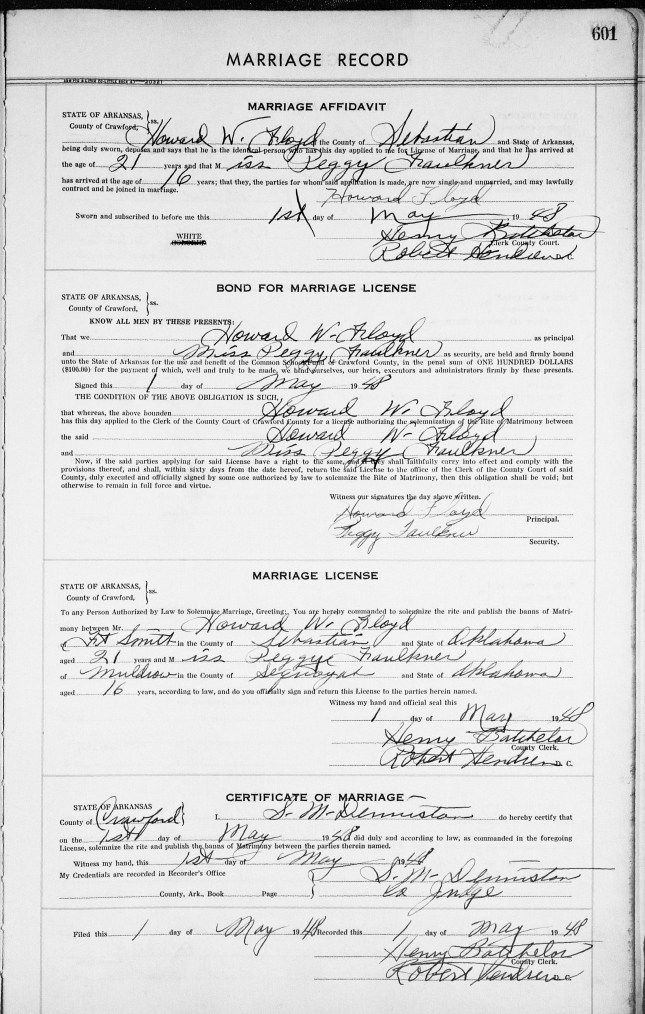 601
MARRIAGE RECORD
MARRIAGE AFFIDAVIT
STATE OF ARKANSAS, } ss.
County of Crawford,
Howard W. Floyd of the County of Sebastian and State of Arkansas,
being duly sworn, deposes and says that he is the identical person who has this day applied to me for License of Marriage, and that he has arrived at
the age of 21 years and that M iss Peggy Faulkner
has arrived at the age of 16 years; that they, the parties for whom said application is made, are now single and unmarried, and may lawfully
contract and be joined in marriage.
Howard Floyd
Sworn and subscribed to before me this 1st day of May, 1948
Henry Batchelor
WHITE
Clerk County Court.
Robert Hendren
BOND FOR MARRIAGE LICENSE
STATE OF ARKANSAS, } ss.
County of Crawford,
KNOW ALL MEN BY THESE PRESENTS:
That we Howard W. Floyd as principal
and Miss Peggy Faulkner as security, are held and firmly bound
unto the State of Arkansas for the use and benefit of the Common School Fund of Crawford County, in the penal sum of ONE HUNDRED DOLLARS
($100.00) for the payment of which, well and truly to be made, we bind ourselves, our heirs, executors and administrators firmly by these presents.
Signed this 1 day of May 1948
THE CONDITION OF THE ABOVE OBLIGATION IS SUCH,
that whereas, the above bounden Howard W. Floyd
has this day applied of the Clerk of the County Court of Crawford County for a license authorizing the solemnization of the Rite of Matrimony between
the said Howard W. Floyd
and Miss Peggy Faulkner
Now, if the said parties applying for said License have a right to the same, and they shall faithfully carry into effect and comply with the
provisions thereof, and shall, within sixty days from the date hereof, return the said License to the office of the Clerk of the County Court of said
County, duly executed and officially signed by some one authorized by law to solemnize the Rite of Matrimony, then this obligation shall be void; but
otherwise to remain in full force and virtue.
Witness our signatures the day above written.
Howard Floyd
Principal.
Peggy Faulkner
Security.
MARRIAGE LICENSE
STATE OF ARKANSAS, } ss.
County of Crawford,
To any Person Authorized by Law to Solemnize Marriage, Greeting: You are hereby commanded to solemnize the rite and publish the banns of Matri-
mony between Mr. Howard W. Floyd
of Ft Smith in the County of Sebastian and State of Oklahoma
aged 21 years and M iss Peggy Faulkner
of Muldrow in the County of Sequoyah and State of Oklahoma
aged 16 years, according to law, and do you officially sign and return this License to the parties herein named.
Witness my hand and official seal this
1 day of May 1948
Henry Batchelor
County Clerk.
Robert Hendren D. C.
CERTIFICATE OF MARRIAGE
STATE OF ARKANSAS
County of Crawford } I, S. M. Denniston do hereby certify that
on the 1st day of May 1948 did duly and according to law, as commanded in the foregoing
License, solemnize the rite and publish the banns of Matrimony between the parties therein named.
Witness my hand, this 1st day of May 1948
My Credentials are recorded in Recorder's Office } S. M. Denniston
County, Ark., Book Page Co Judge
Filed this 1 day of May 1948 Recorded this 1 day of May 1948
Henry Batchelor
County Clerk.
Robert Hendren DC